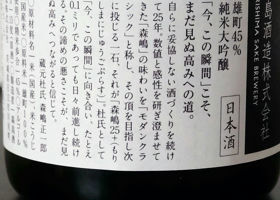 島酒造株式会社
RISHIMA SAKE BREWERY
雄町45%
純米大吟醸
日本酒
「今、この瞬間」こそ、
まだ見ぬ高みへの道。
自らに妥協しない酒づくりを続け
て25年。数値と感性を研ぎ澄ませて
「森嶋」の味わいを「モダンクラ
シック」と称し、その頂を目指し次
に投じる一石、それが「森嶋25+」もり
しまにじゅうごぷらす。杜氏として
「今、この瞬間」に向き合い、たとえ
0.1ミリであっても日々前進し続け
る。その諦めの悪さこそが、まだ見
ぬ高みへつながると信じて。
蔵元杜氏 森嶋正一郎